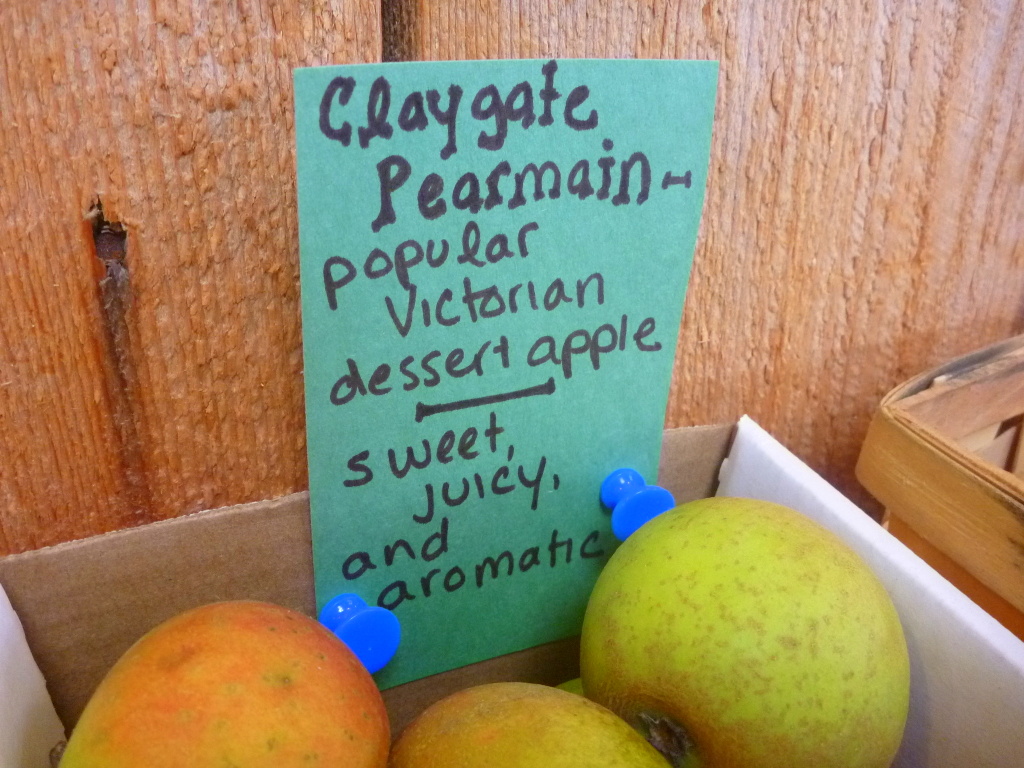 Claygate
Pearmain -
popular
Victorian
dessert apple
sweet,
juicy,
and
aromatic